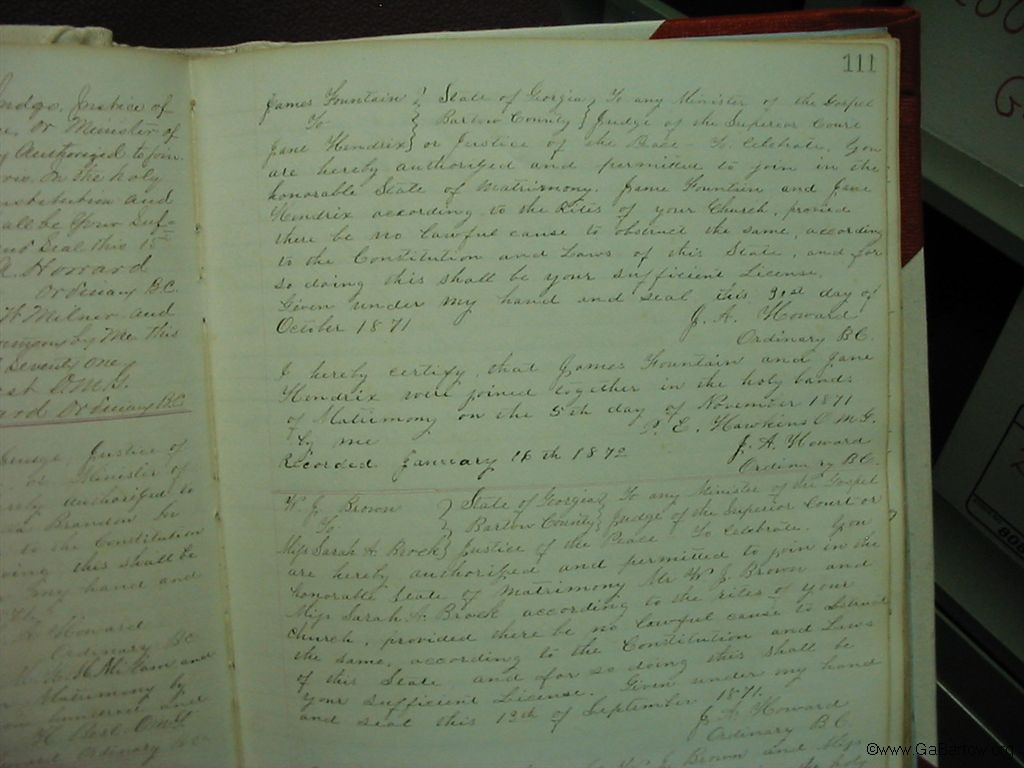 Judge, Justice of
or Minister of
Authorized to join
on the holy
institution and
shall be your Suf-
and Seal this 15th
A. Howard
Ordinary B.C.
W Milner and
ceremony by Me this
Seventy one
O.M.G.
Ordinary B.C.
Judge, Justice of
or Minister of
authorized to
Brandon
to the Constitution
doing this shall be
my hand and
Howard
Ordinary BC
and
Matrimony by
hundred and
O.M.G
Ordinary B.C.
111
James Fountain } State of Georgia } To any Minister of the Gospel
To } Bartow County } Judge of the Superior Court
Jane Hendrix } or Justice of the Peace - To Celebrate. You
are hereby authorized and permitted to join in the
honorable State of Matrimony. James Fountain and Jane
Hendrix according to the Rites of your Church, provied
there be no lawful cause to obstruct the same, according
to the Constitution and Laws of this State, and for
so doing this shall be your sufficient License.
Given under my hand and seal this 31st day of
October 1871
J. A. Howard
Ordinary B.C.
I hereby certify that James Fountain and Jane
Hendrix were joined together in the holy bands
of Matrimony on the 5th day of November 1871
by me P. E. Hawkins O.M.G.
Recorded January 16th 1872 J. A. Howard
Ordinary B.C.
W J. Brown } State of Georgia } To any Minister of the Gospel
To } Bartow County } Judge of the Superior Court or
Miss Sarah A. Brock } Justice of the Peace To Celebrate. You
are hereby authorized and permitted to join in the
honorable State of Matrimony Mr W J. Brown and
Miss Sarah A. Brock according to the rites of your
Church, provided there be no lawful cause to obstruct
the same, according to the Constitution and Laws
of this State and for so doing this shall be
your sufficient License. Given under my hand
and seal this 13th of September 1871.
J A Howard
Ordinary B.C.
Brown and Miss
the holy
©www.GaBartow.org